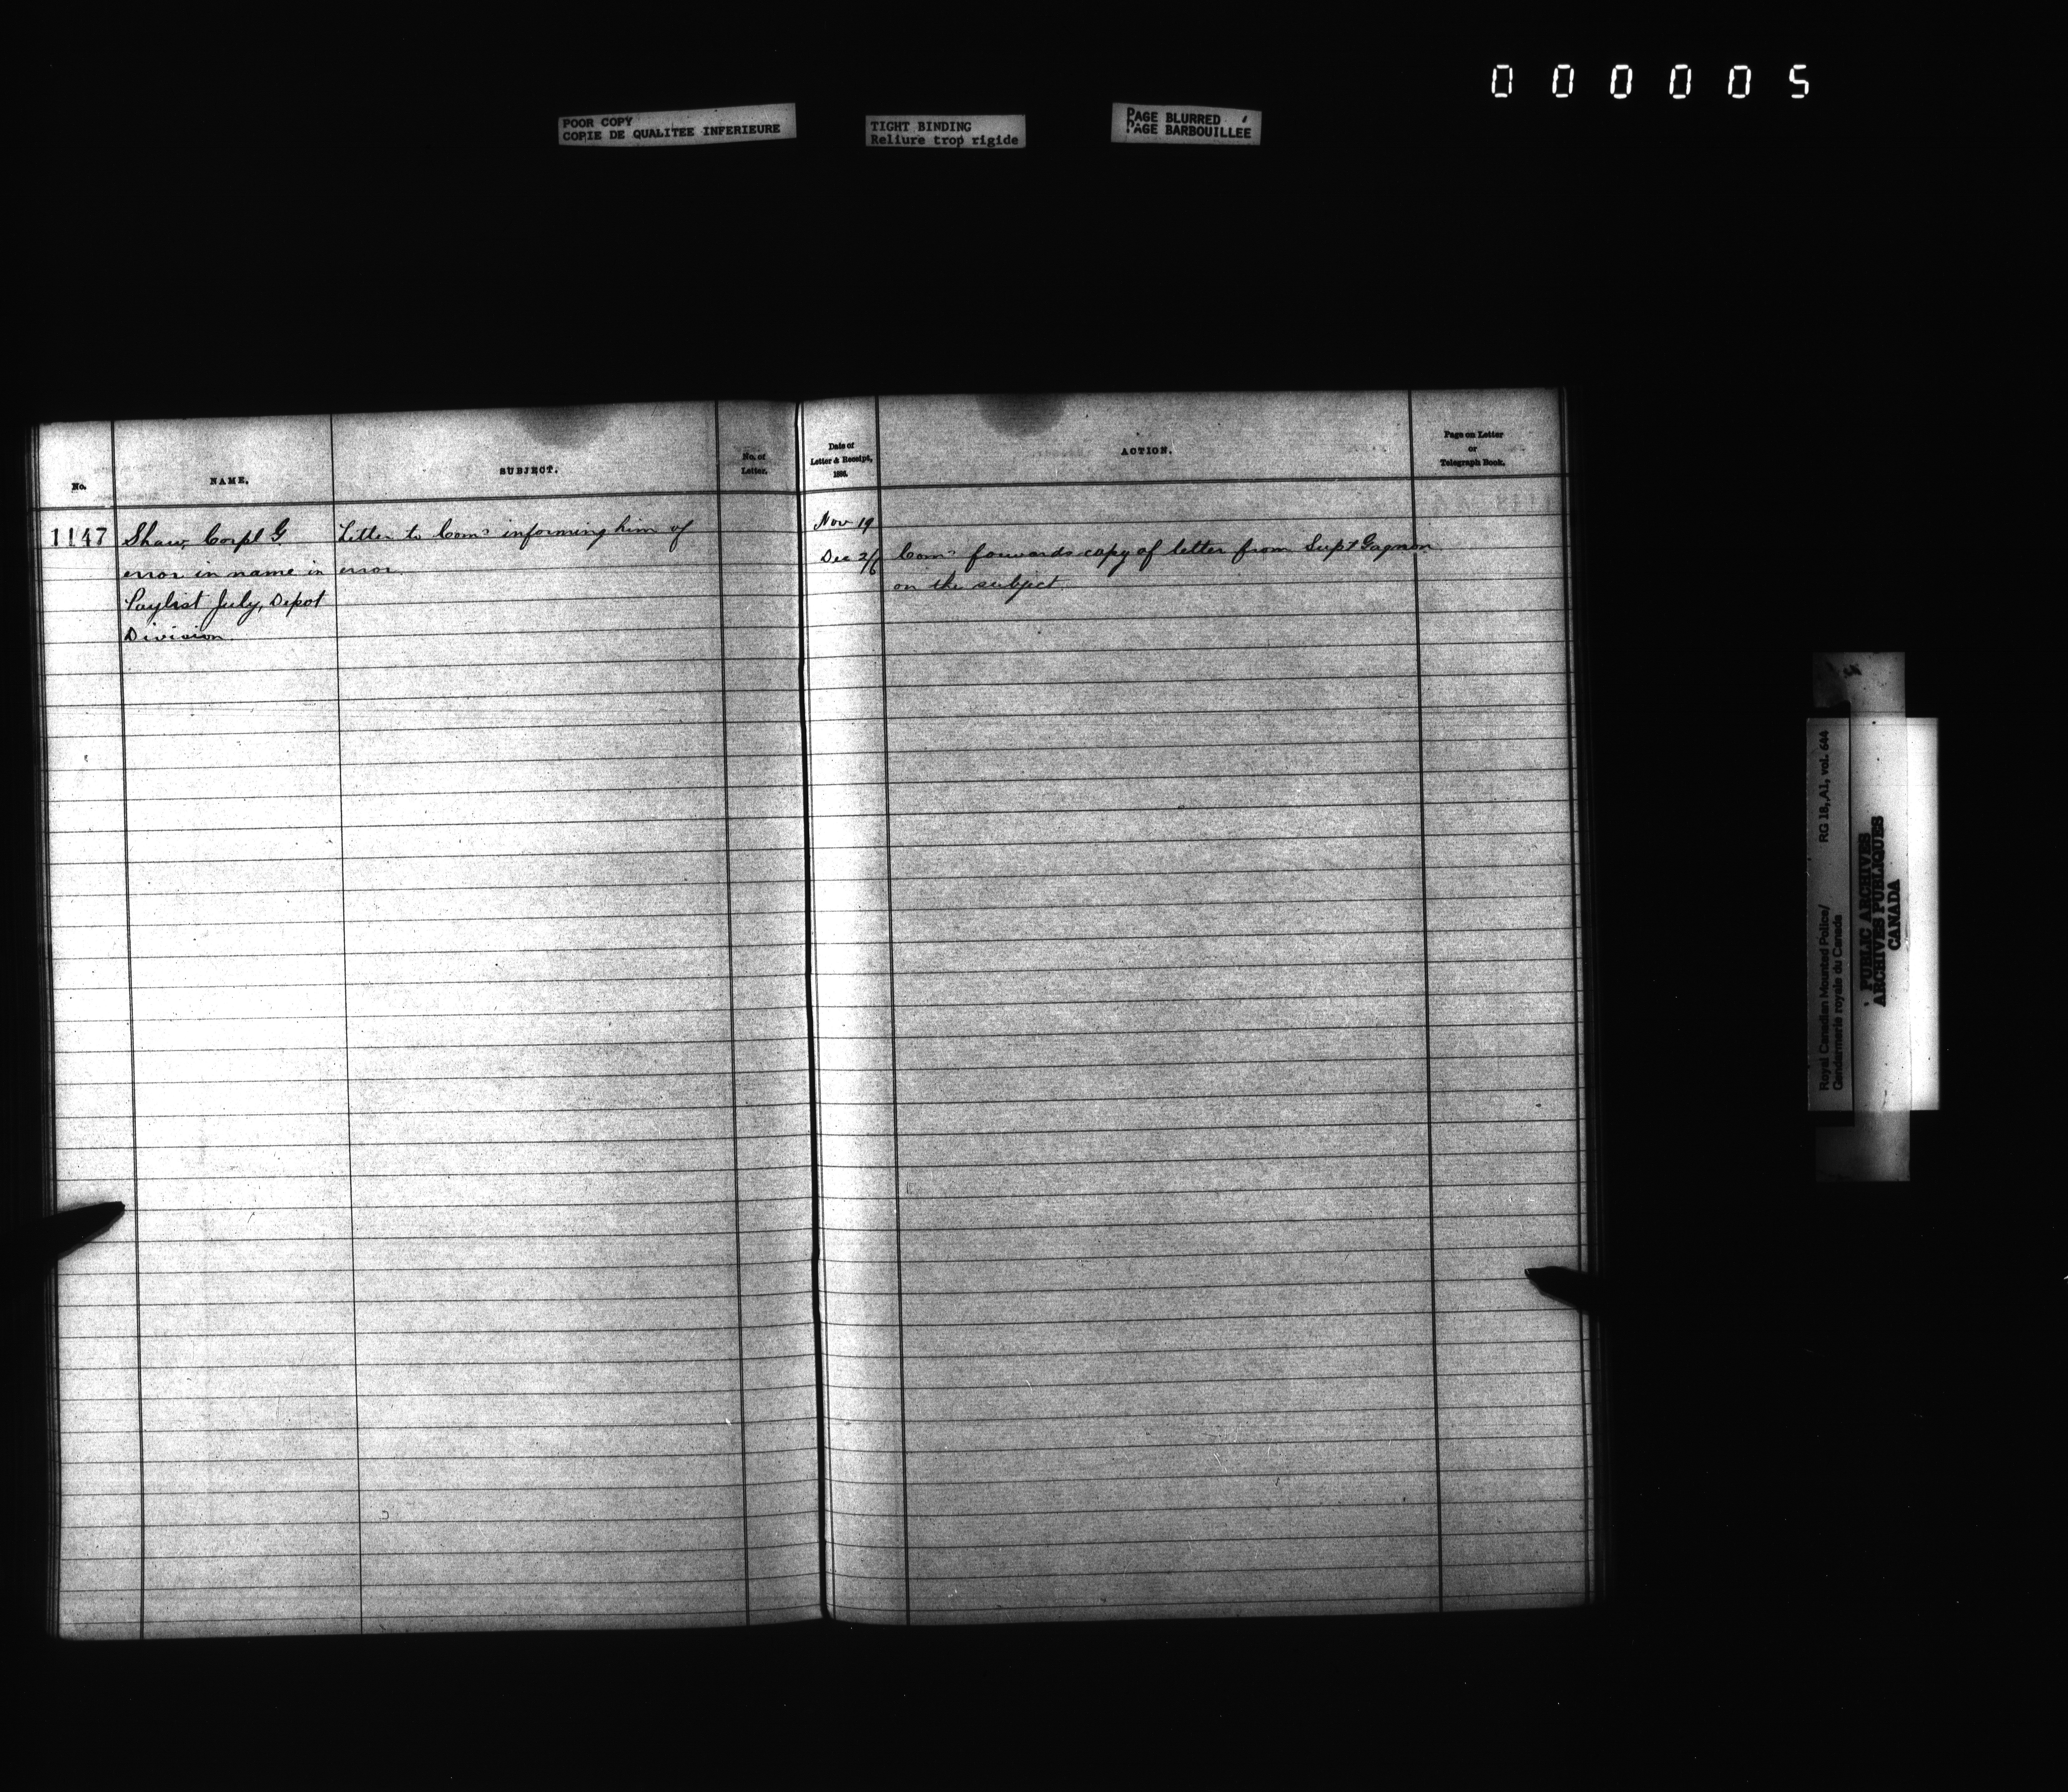 000005
POOR COPY
COPIE DE QUALITEE INFERIEURE
TIGHT BINDING
Reliure trop rigide
PAGE BLURRED
PAGE BARBOUILLEE
No.
NAME.
SUBJECT.
No. of
Letter.
Date of
Letter & Receipt,
ACTION.
Page on Letter
or
Telegraph Book.
1147
Shaw, Corpl G.
error in name in
Paylist July, Depot
Division
Letter to Comr informing him of
error
Nov 19
Dec 2/6
Comr forwards copy of letter from Supt Gagnon
on the subject
Royal Canadian Mounted Police/
Gendarmerie royale du Canada
RG 18, A1, vol. 644
PUBLIC ARCHIVES
ARCHIVES PUBLIQUES
CANADA